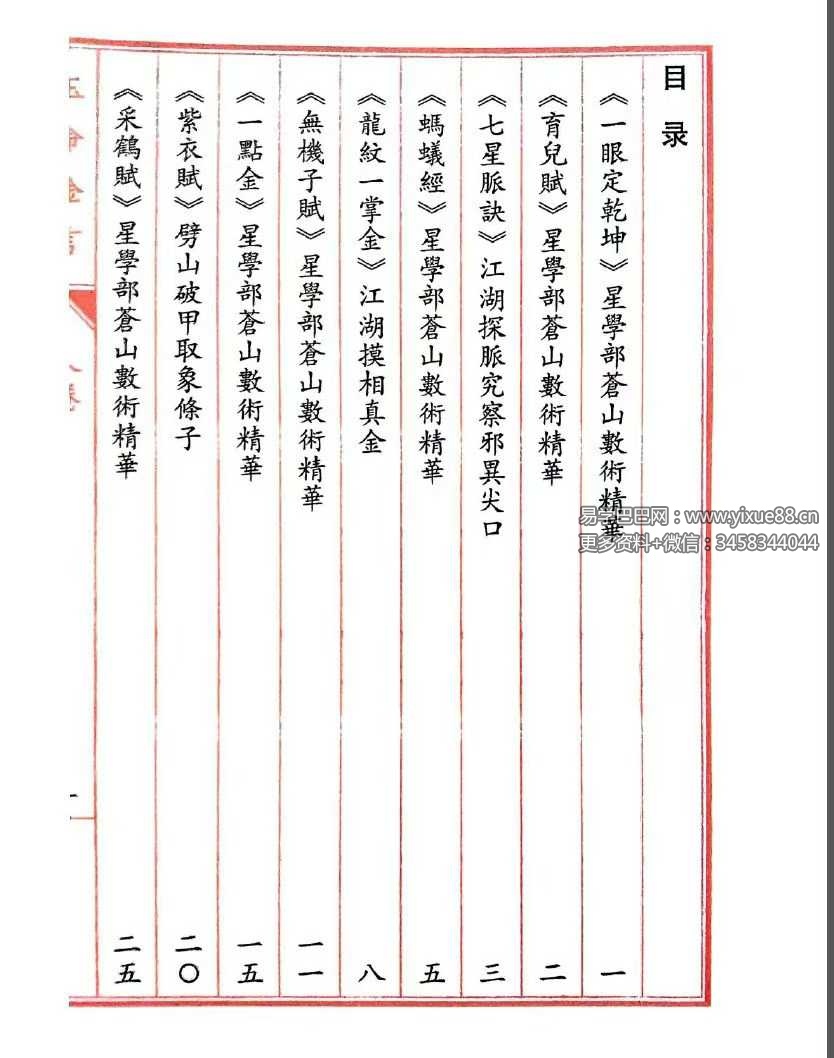 目录
《一眼定乾坤》星學部蒼山數術精華 一
《育兒賦》星學部蒼山數術精華 二
《七星脈訣》江湖探脈究察邪異尖口 三
《螞蟻經》星學部蒼山數術精華 五
《龍紋一掌金》江湖摸相真金 八
《無機子賦》星學部蒼山數術精華 一一
《一點金》星學部蒼山數術精華 一五
《紫衣賦》劈山破甲取象條子 二〇
《采鶴賦》星學部蒼山數術精華 二五
易学巴巴网：www.yixue88.cn
更多资料+微信：3458344044